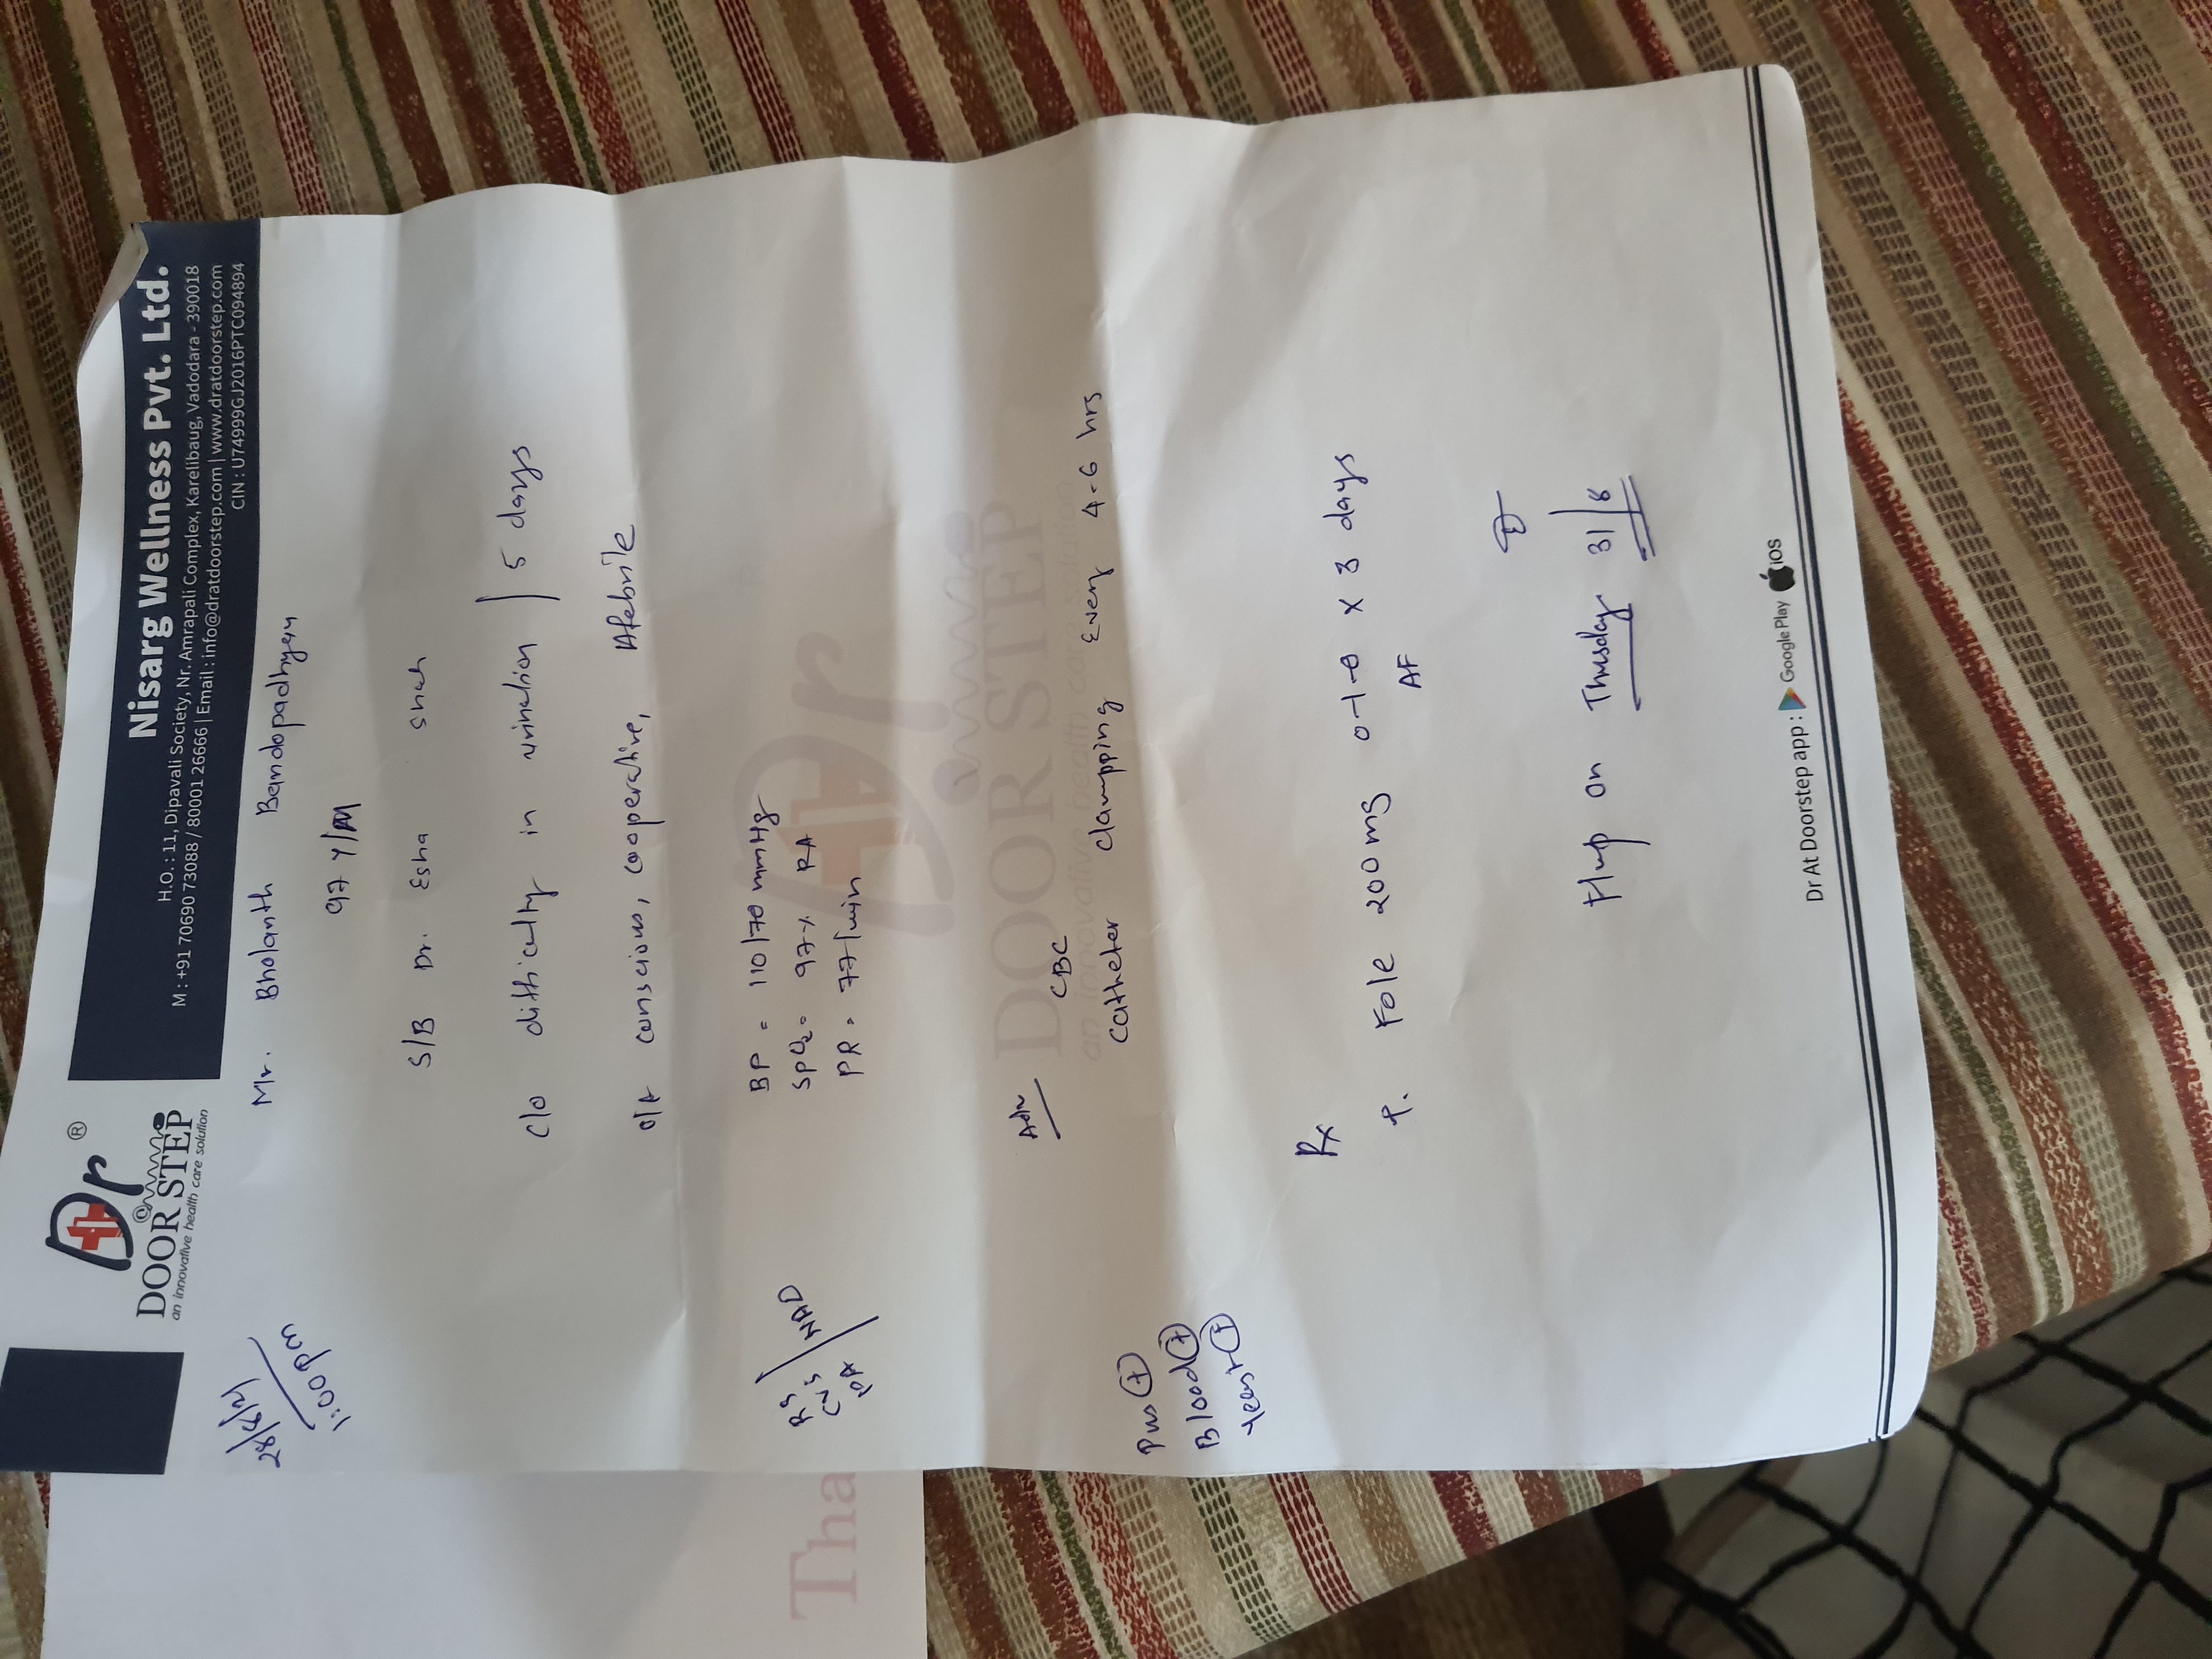 Dr ®
DOOR STEP
an innovative health care solution
Nisarg Wellness Pvt. Ltd.
H.O. : 11, Dipavali Society, Nr. Amrapali Complex, Karelibaug, Vadodara - 390018
M : +91 70690 73088 / 80001 26666 | Email : info@dratdoorstep.com | www.dratdoorstep.com
CIN : U74999GJ2016PTC094894
28/8/21
1:00pm
Mr. Bholanth Bandopadhyay
97 Y/M
S/B Dr. Esha Shah
C/O difficulty in urination | 5 days
conscious, cooperative, Afebrile
RS
CVS
PA
NAD
BP = 110/70 mmHg
SpO2 = 97% RA
PR = 77/min
Tha
Dr
DOOR STEP
an innovative health care solution
Adv
CBC
Catheter clampping Every 4-6 hrs
Pus (+)
Blood (+)
Yeast (+)
Rx
T. Fole 200mg 0-1-0 x 3 days
AF
Flup on Thusday 31/8
Dr At Doorstep app : Google Play iOS